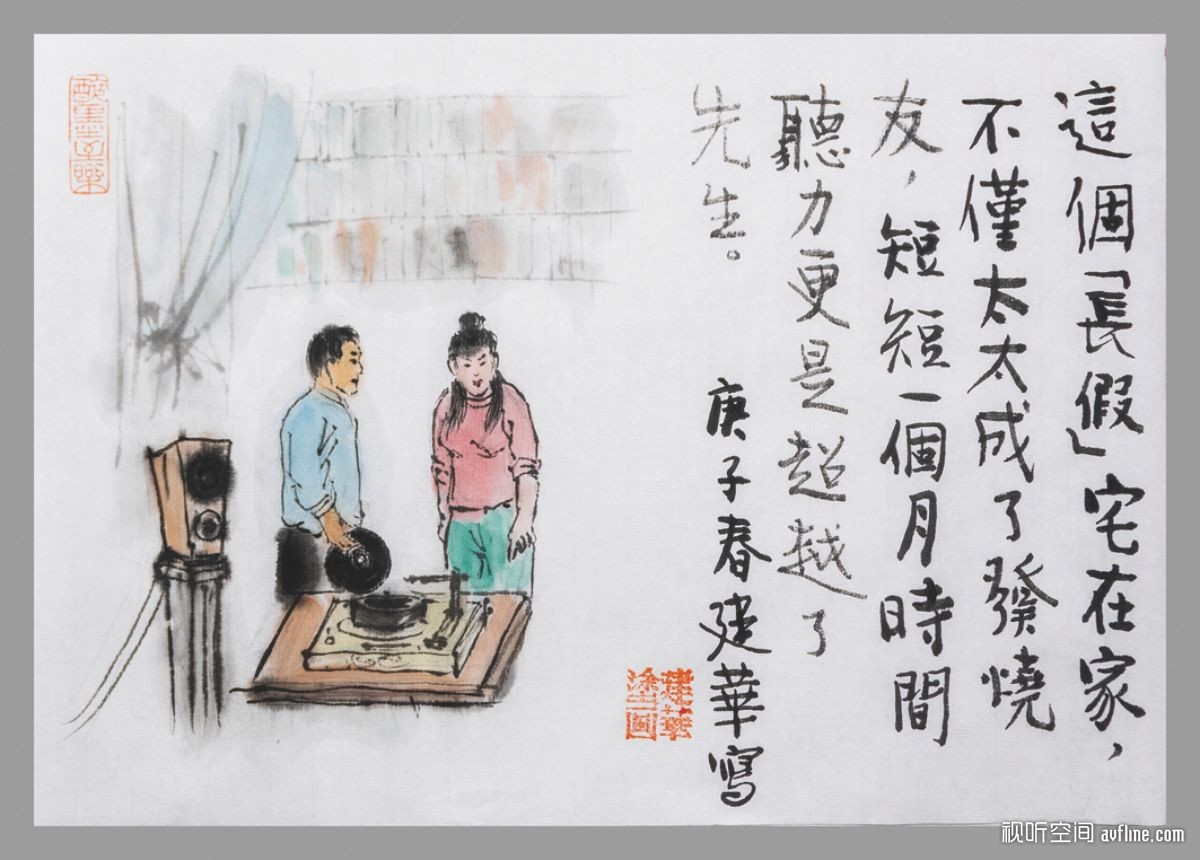 這個「長假」宅在家，
不僅太太成了發燒
友，短短一個月時間
聽力更是超越了
先生。
庚子春建華寫
建華
塗画
视听空间 avfline.com